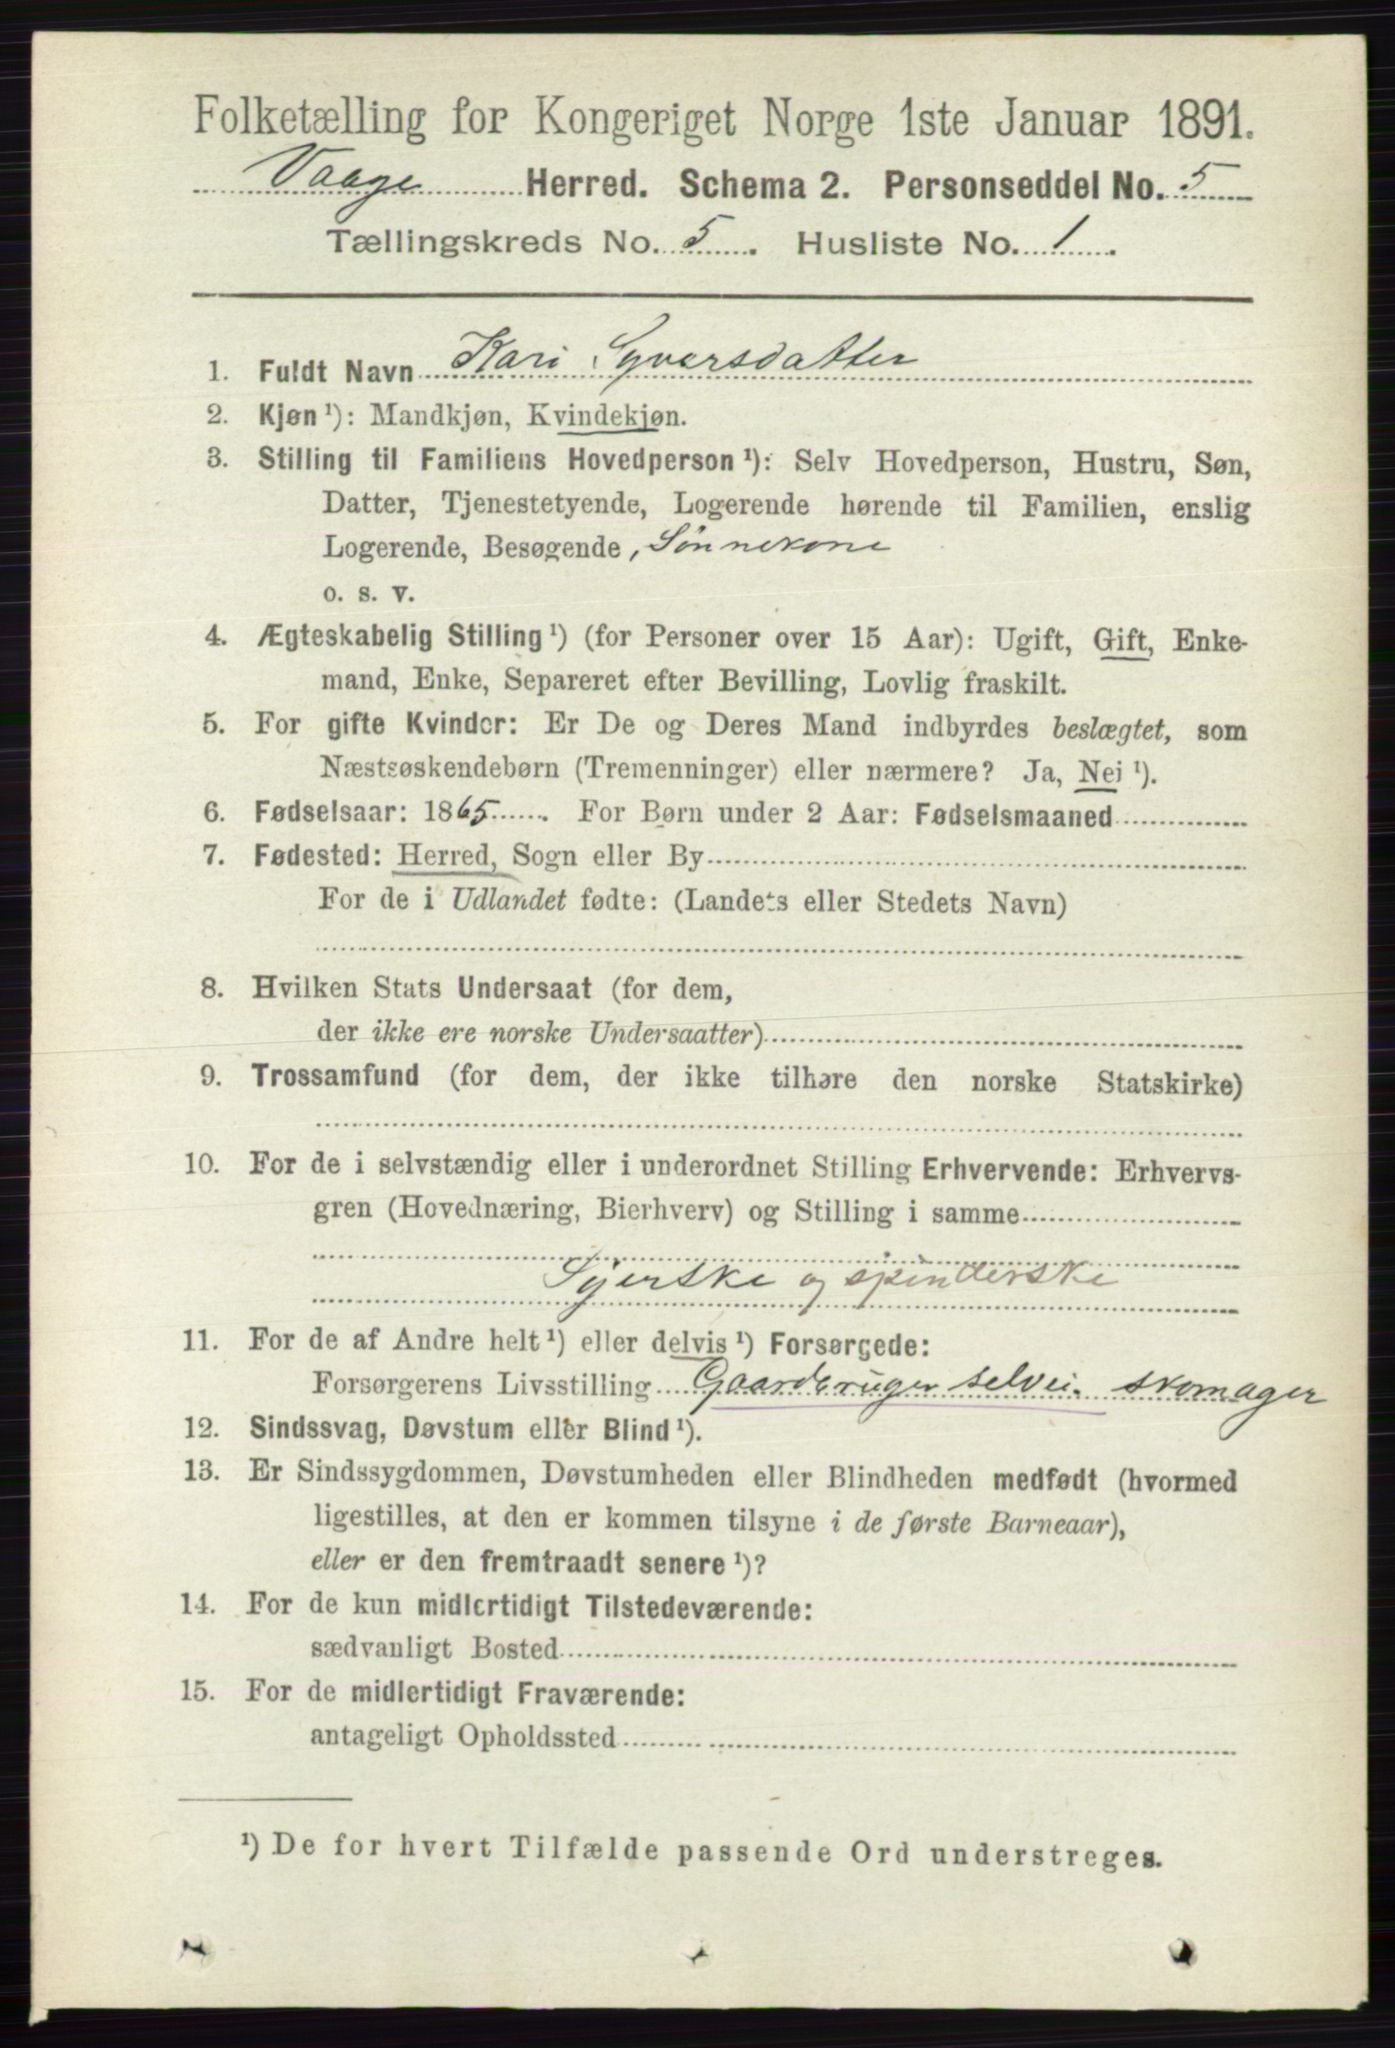 Folketælling for Kongeriget Norge 1ste Januar 1891.
Vaage Herred. Schema 2. Personseddel No. 5
Tællingskreds No. 5. Husliste No. 1.
1. Fuldt Navn Kari Syversdatter
2. Kjøn ¹): Mandkjøn, Kvindekjøn.
3. Stilling til Familiens Hovedperson ¹): Selv Hovedperson, Hustru, Søn,
Datter, Tjenestetyende, Logerende hørende til Familien, enslig
Logerende, Besøgende, Sønnekone
o. s. v.
4. Ægteskabelig Stilling ¹) (for Personer over 15 Aar): Ugift, Gift, Enke-
mand, Enke, Separeret efter Bevilling, Lovlig fraskilt.
5. For gifte Kvinder: Er De og Deres Mand indbyrdes beslægtet, som
Næstsøskendebørn (Tremenninger) eller nærmere? Ja, Nei ¹).
6. Fødselsaar: 1865. For Børn under 2 Aar: Fødselsmaaned
7. Fødested: Herred, Sogn eller By
For de i Udlandet fødte: (Landets eller Stedets Navn)
8. Hvilken Stats Undersaat (for dem,
der ikke ere norske Undersaatter)
9. Trossamfund (for dem, der ikke tilhøre den norske Statskirke)
10. For de i selvstændig eller i underordnet Stilling Erhvervende: Erhvervs-
gren (Hovednæring, Bierhverv) og Stilling i samme
Syerske og spinderske
11. For de af Andre helt ¹) eller delvis ¹) Forsørgede:
Forsørgerens Livsstilling Gaardbruger selvei. skomager
12. Sindssvag, Døvstum eller Blind ¹).
13. Er Sindssygdommen, Døvstumheden eller Blindheden medfødt (hvormed
ligestilles, at den er kommen tilsyne i de første Barneaar),
eller er den fremtraadt senere ¹)?
14. For de kun midlertidigt Tilstedeværende:
sædvanligt Bosted
15. For de midlertidigt Fraværende:
antageligt Opholdssted
¹) De for hvert Tilfælde passende Ord understreges.